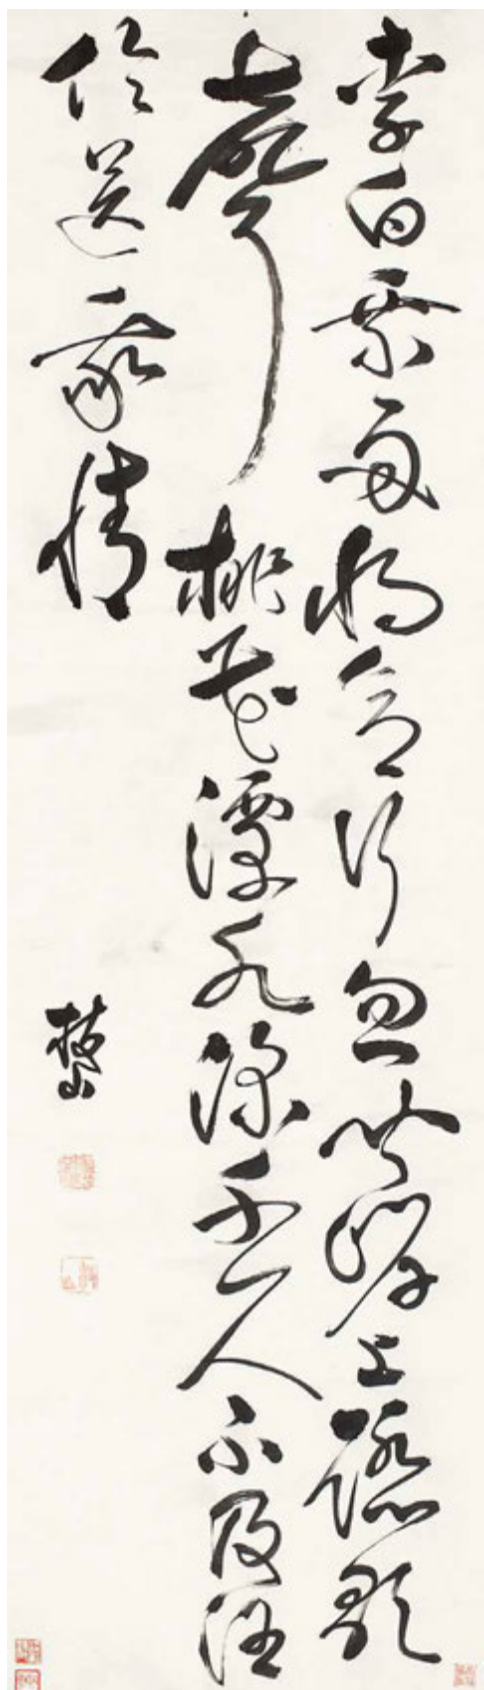 李白乘舟將欲行忽聞岸上踏歌
聲桃花潭水深千尺不及汪
倫送我情
枝山